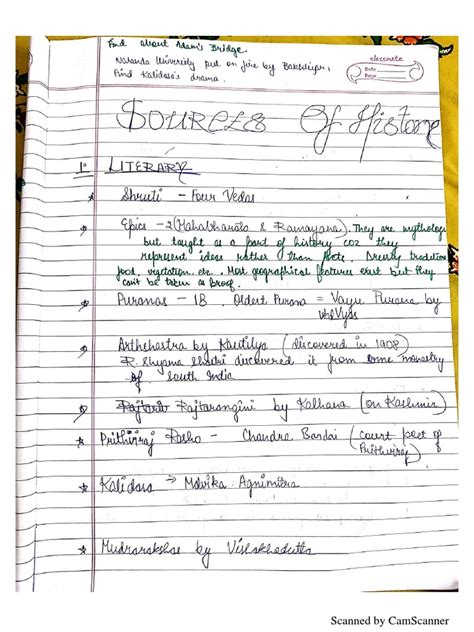 Find about Adam's Bridge.
Nalanda University put on fire by Bakhtiyar,
Find Kalidasa's drama.
classmate
Date
Page
SOURCES Of History
1. LITERARY
Shruti - Four Vedas
Epics - 2 (Mahabharata & Ramayana). They are mythology
but taught as a part of history coz they
represent ideas rather than facts. Dressing traditions
food, vegetation etc. Most geographical features exist but they
can't be taken as proof.
Puranas - 18. Oldest Purana = Vayu Purana by
Vyas
Arthshastra by Kautilya (discovered in 1908)
R. Shyama Shastri discovered it from some monastry
of South India
Rajtarangini by Kalhana (on Kashmir)
Prithviraj Rasho - Chandra Bardai (court poet of
Prithviraj)
Kalidasa → Malvika Agnimitra
Mudrarakshas by Vishakhadutta
Scanned by CamScanner